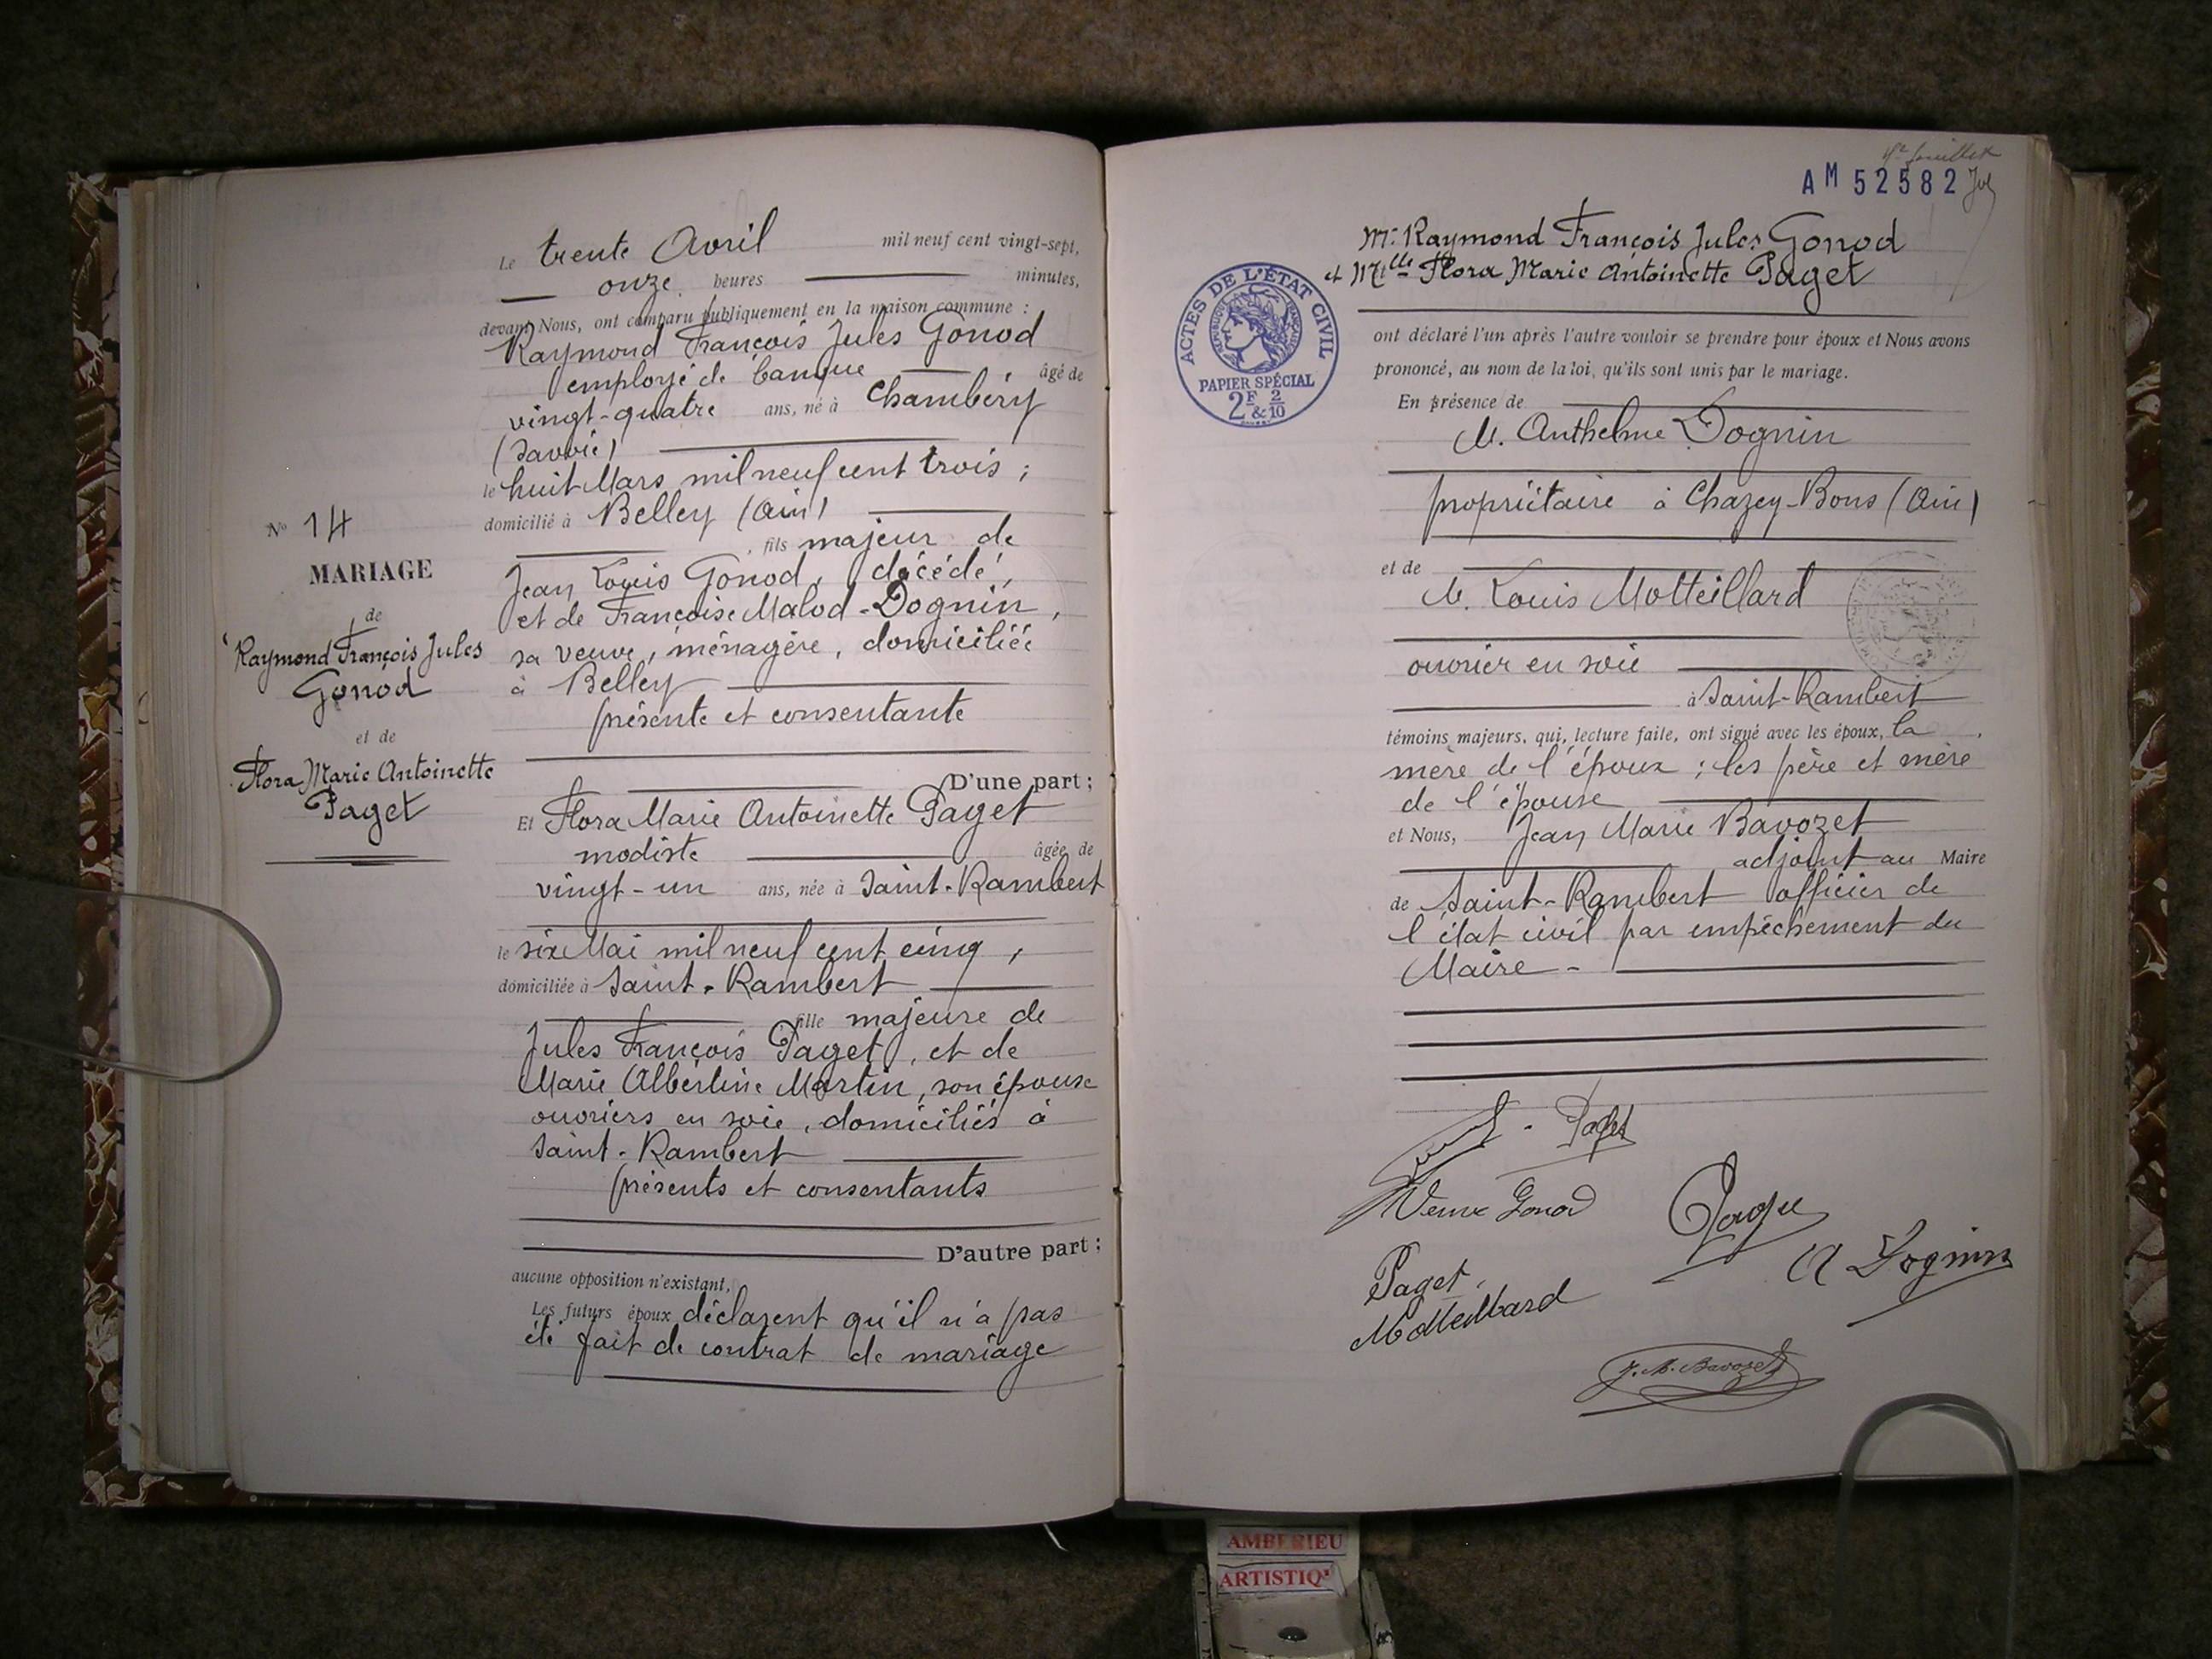 N° 14
MARIAGE
de
Raymond François Jules
Gonod
et de
Flora Marie Antoinette
Paget
Le trente Avril mil neuf cent vingt-sept,
onze heures minutes,
devant Nous, ont comparu publiquement en la maison commune :
Raymond François Jules Gonod
employé de banque âgé de
vingt-quatre ans, né à Chambéry
(Savoie)
le huit Mars mil neuf cent trois ;
domicilié à Belley (Ain)
, fils majeur de
Jean Louis Gonod, décédé,
et de Françoise Malod-Dognin,
sa veuve, ménagère, domiciliée
à Belley
présente et consentante
D'une part ;
Et Flora Marie Antoinette Paget
modiste âgée de
vingt-un ans, née à Saint-Rambert
le six Mai mil neuf cent cinq,
domiciliée à Saint-Rambert
fille majeure de
Jules François Paget, et de
Marie Albertine Martin, son épouse
ouvriers en soie, domiciliés à
Saint-Rambert
présents et consentants
D'autre part ;
aucune opposition n'existant,
Les futurs époux déclarent qu'il n'a pas
été fait de contrat de mariage
feuillet
AM 52582
ACTES DE L'ÉTAT CIVIL
REPUBLIQUE FRANÇAISE
PAPIER SPÉCIAL
2F & 2/10
Mr Raymond François Jules Gonod
et Melle Flora Marie Antoinette Paget
ont déclaré l'un après l'autre vouloir se prendre pour époux et Nous avons
prononcé, au nom de la loi, qu'ils sont unis par le mariage.
En présence de
M. Anthelme Dognin
propriétaire à Chazey-Bons (Ain)
et de
M. Louis Motteillard
ouvrier en soie
à Saint-Rambert
témoins majeurs, qui, lecture faite, ont signé avec les époux, la
mère de l'époux ; les père et mère
de l'épouse
et Nous, Jean Marie Bavozet
adjoint au Maire
de Saint-Rambert officier de
l'état civil par empêchement du
Maire -
Paget
Veuve Gonod
Paget
A Dognin
Paget
Motteillard
J. M. Bavozet
AMBERIEU
ARTISTIQ